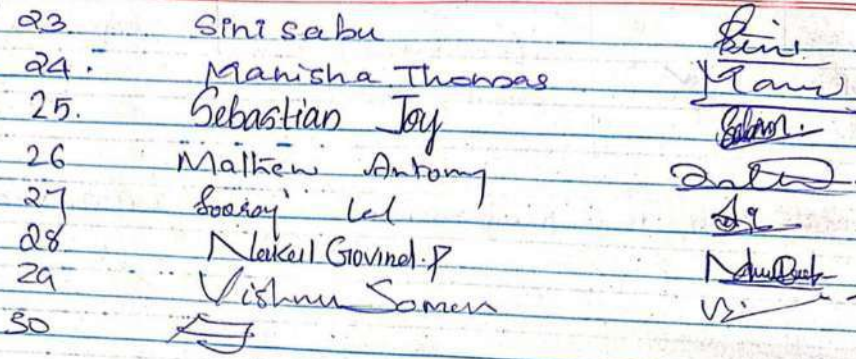 23. Sini sabu Sini
24. Manisha Thomas
25. Sebastian Joy
26 Mathew Antony
27 Sooraj Lal
28 Nakul Govind.P
29 Vishnu Somen
30